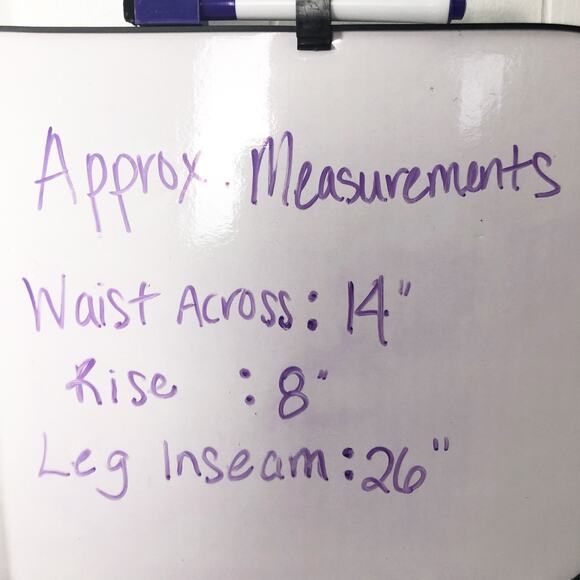 Approx. Measurements
Waist Across: 14"
Rise : 8"
Leg Inseam: 26"